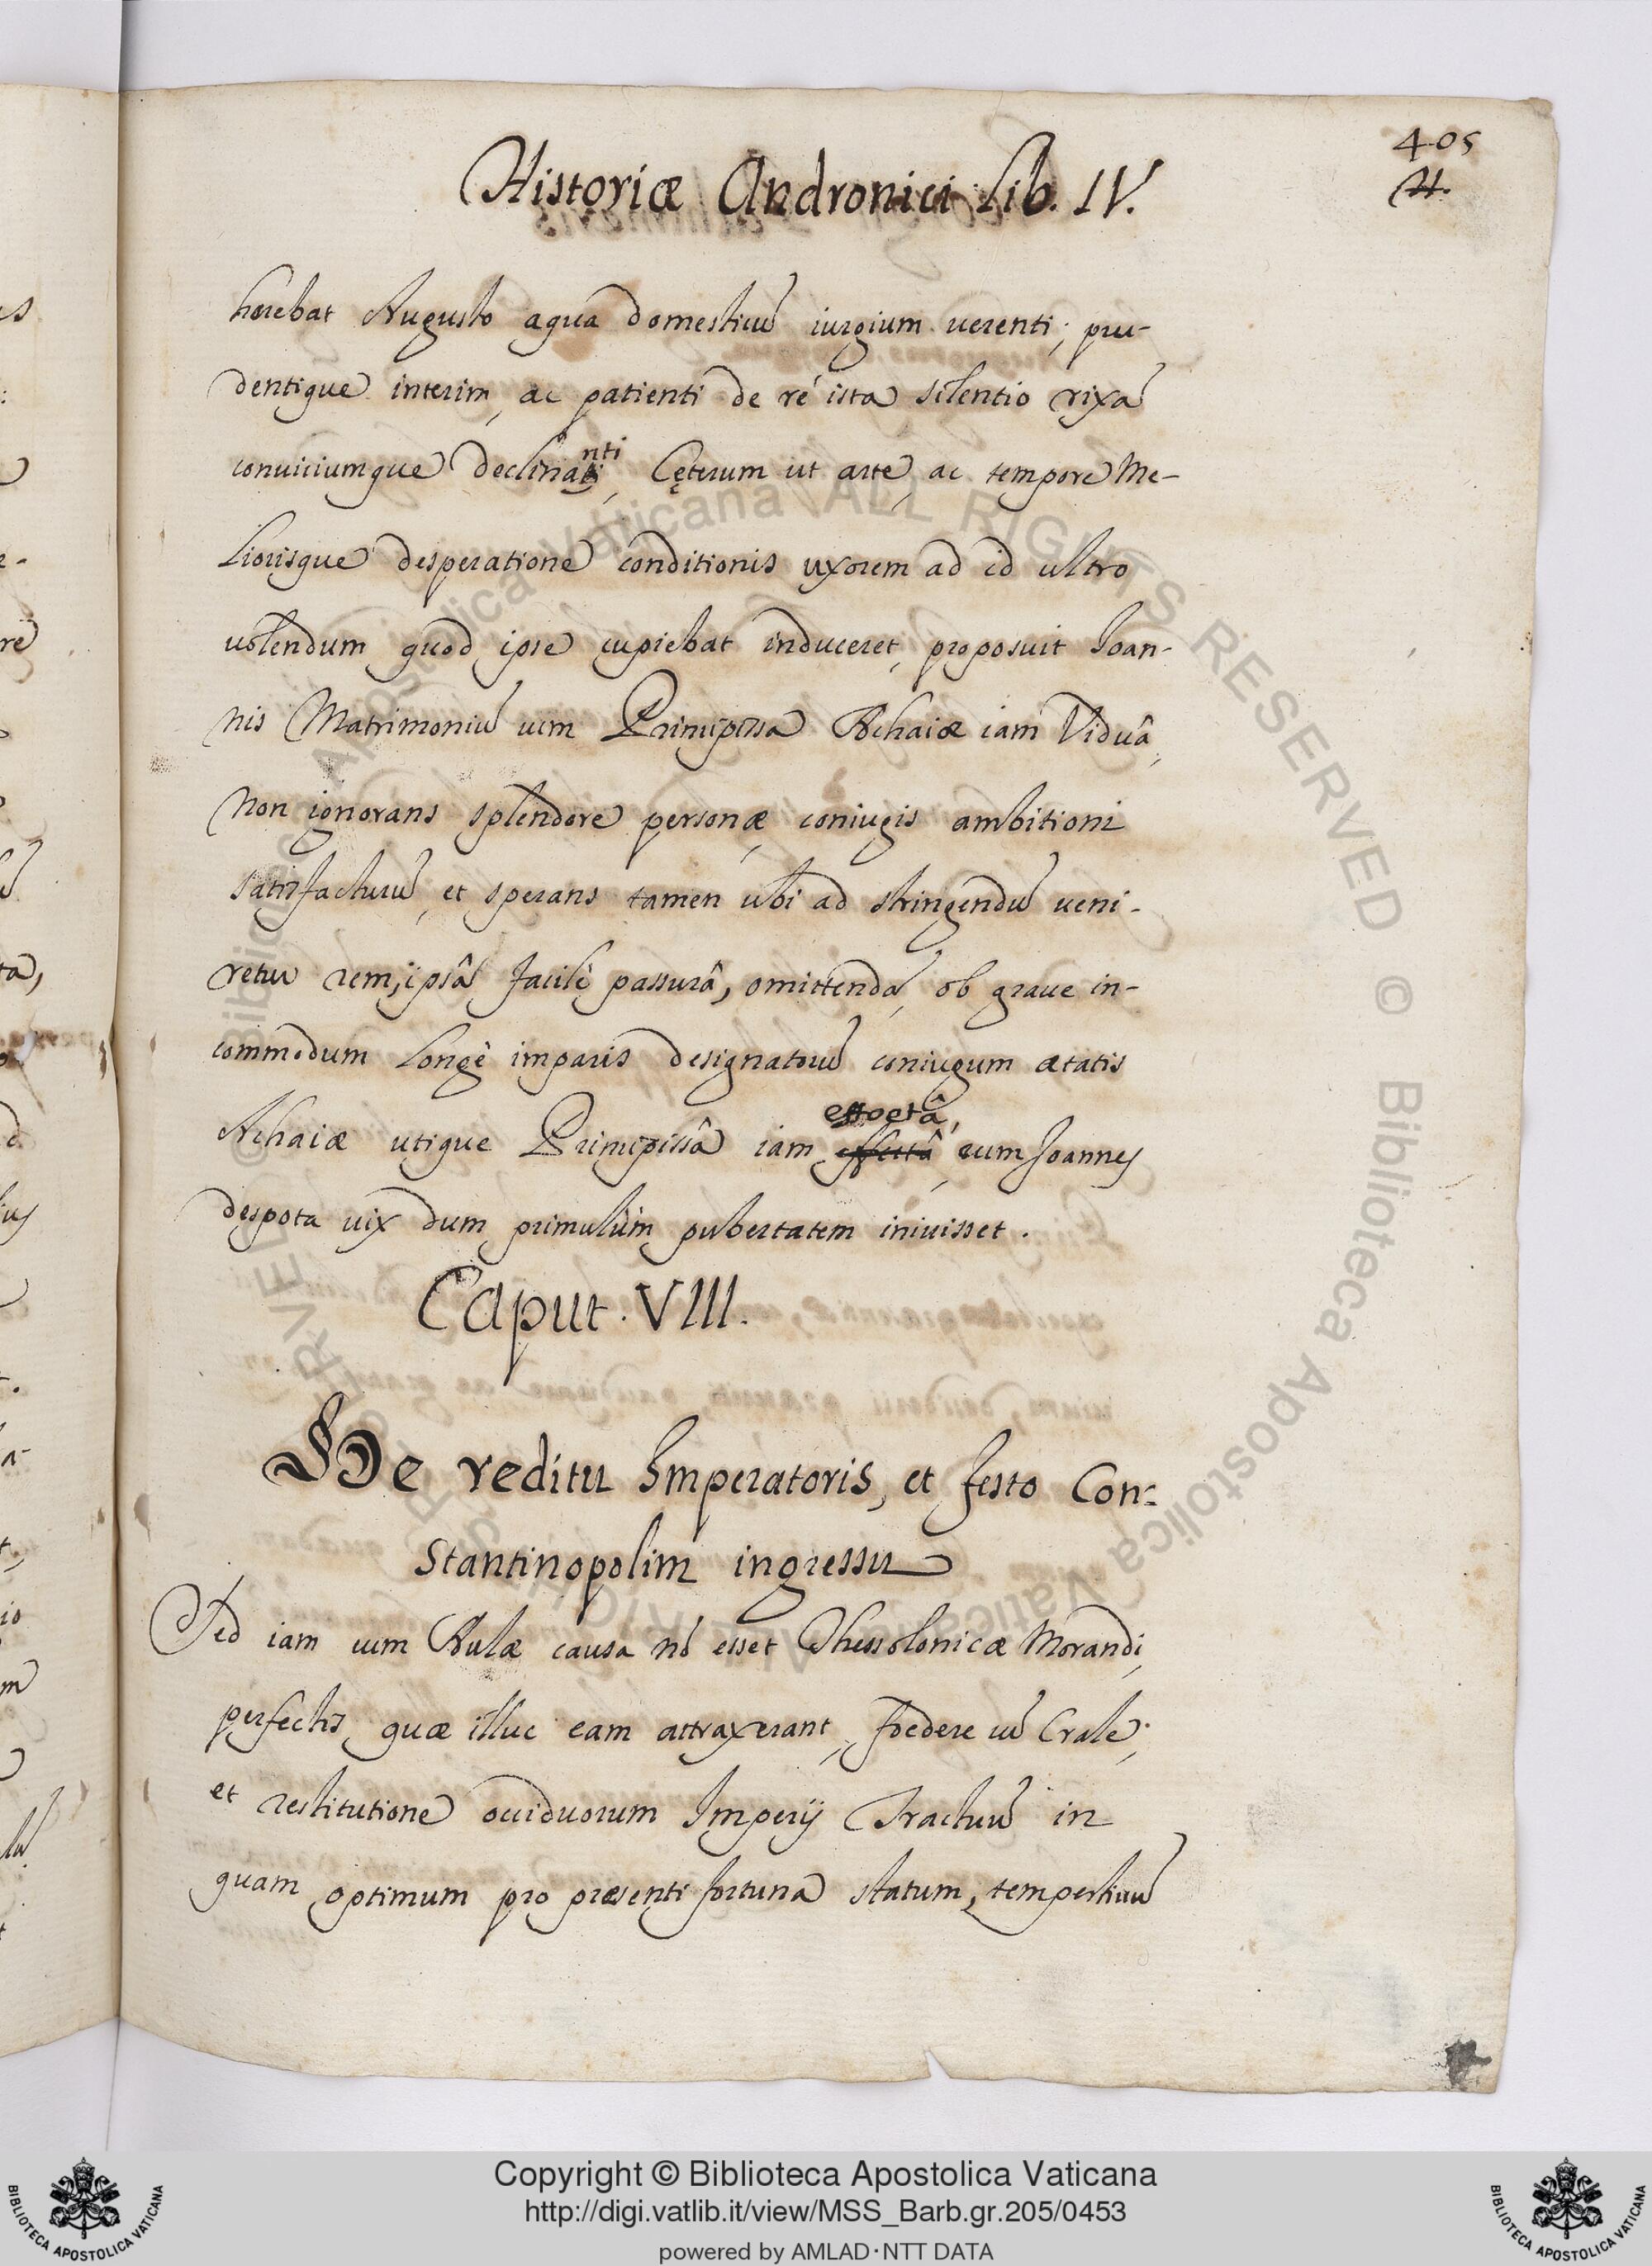 405
H.
Historiæ Andronici Lib. IV.
hærebat Augusto aqua domesticũ iurgium uerenti; pru-
dentique interim, ac patienti de re ista silentio rixã
conuiciumque declinanti, Cęterum ut arte, ac tempore Me-
liorisque desperatione conditionis uxorem ad id ultro
uolendum quod ipse cupiebat induceret, proposuit Ioan-
nis Matrimoniũ cum Principissa Achaiæ iam Viduâ,
non ignorans splendore personæ coniugis ambitioni
satisfacturũ, et sperans tamen ubi ad stringendũ ueni-
retur rem, ipsã facilè passurã, omittendã, ob graue in-
commodum longè imparis designatorũ coniugum ætatis
effoetâ,
Achaiæ utique Principissâ iam effectâ, cum Joannes
despota uix dum primulùm pubertatem iniuisset.
Caput. VIII.
De reditu Imperatoris, et festo Con=
stantinopolim ingressu
Sed iam cum Aulæ causa nõ esset Thessolonicæ Morandi,
perfectis, quæ illuc eam attraxerant, foedere cũ Crale;
et restitutione occiduorum Imperij Tractuũ in
quam optimum pro præsenti fortuna statum, tempestiuũ
© Biblioteca Apostolica Vaticana ALL RIGHTS RESERVED © Biblioteca Apostolica Vaticana ALL RIGHTS RESERVED
Copyright © Biblioteca Apostolica Vaticana
http://digi.vatlib.it/view/MSS_Barb.gr.205/0453
powered by AMLAD·NTT DATA
BIBLIOTECA APOSTOLICA VATICANA
BIBLIOTECA APOSTOLICA VATICANA